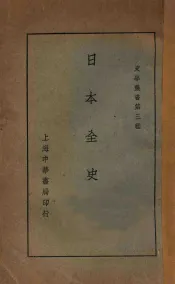 史學叢書第三種
日本全史
上海中華書局印行